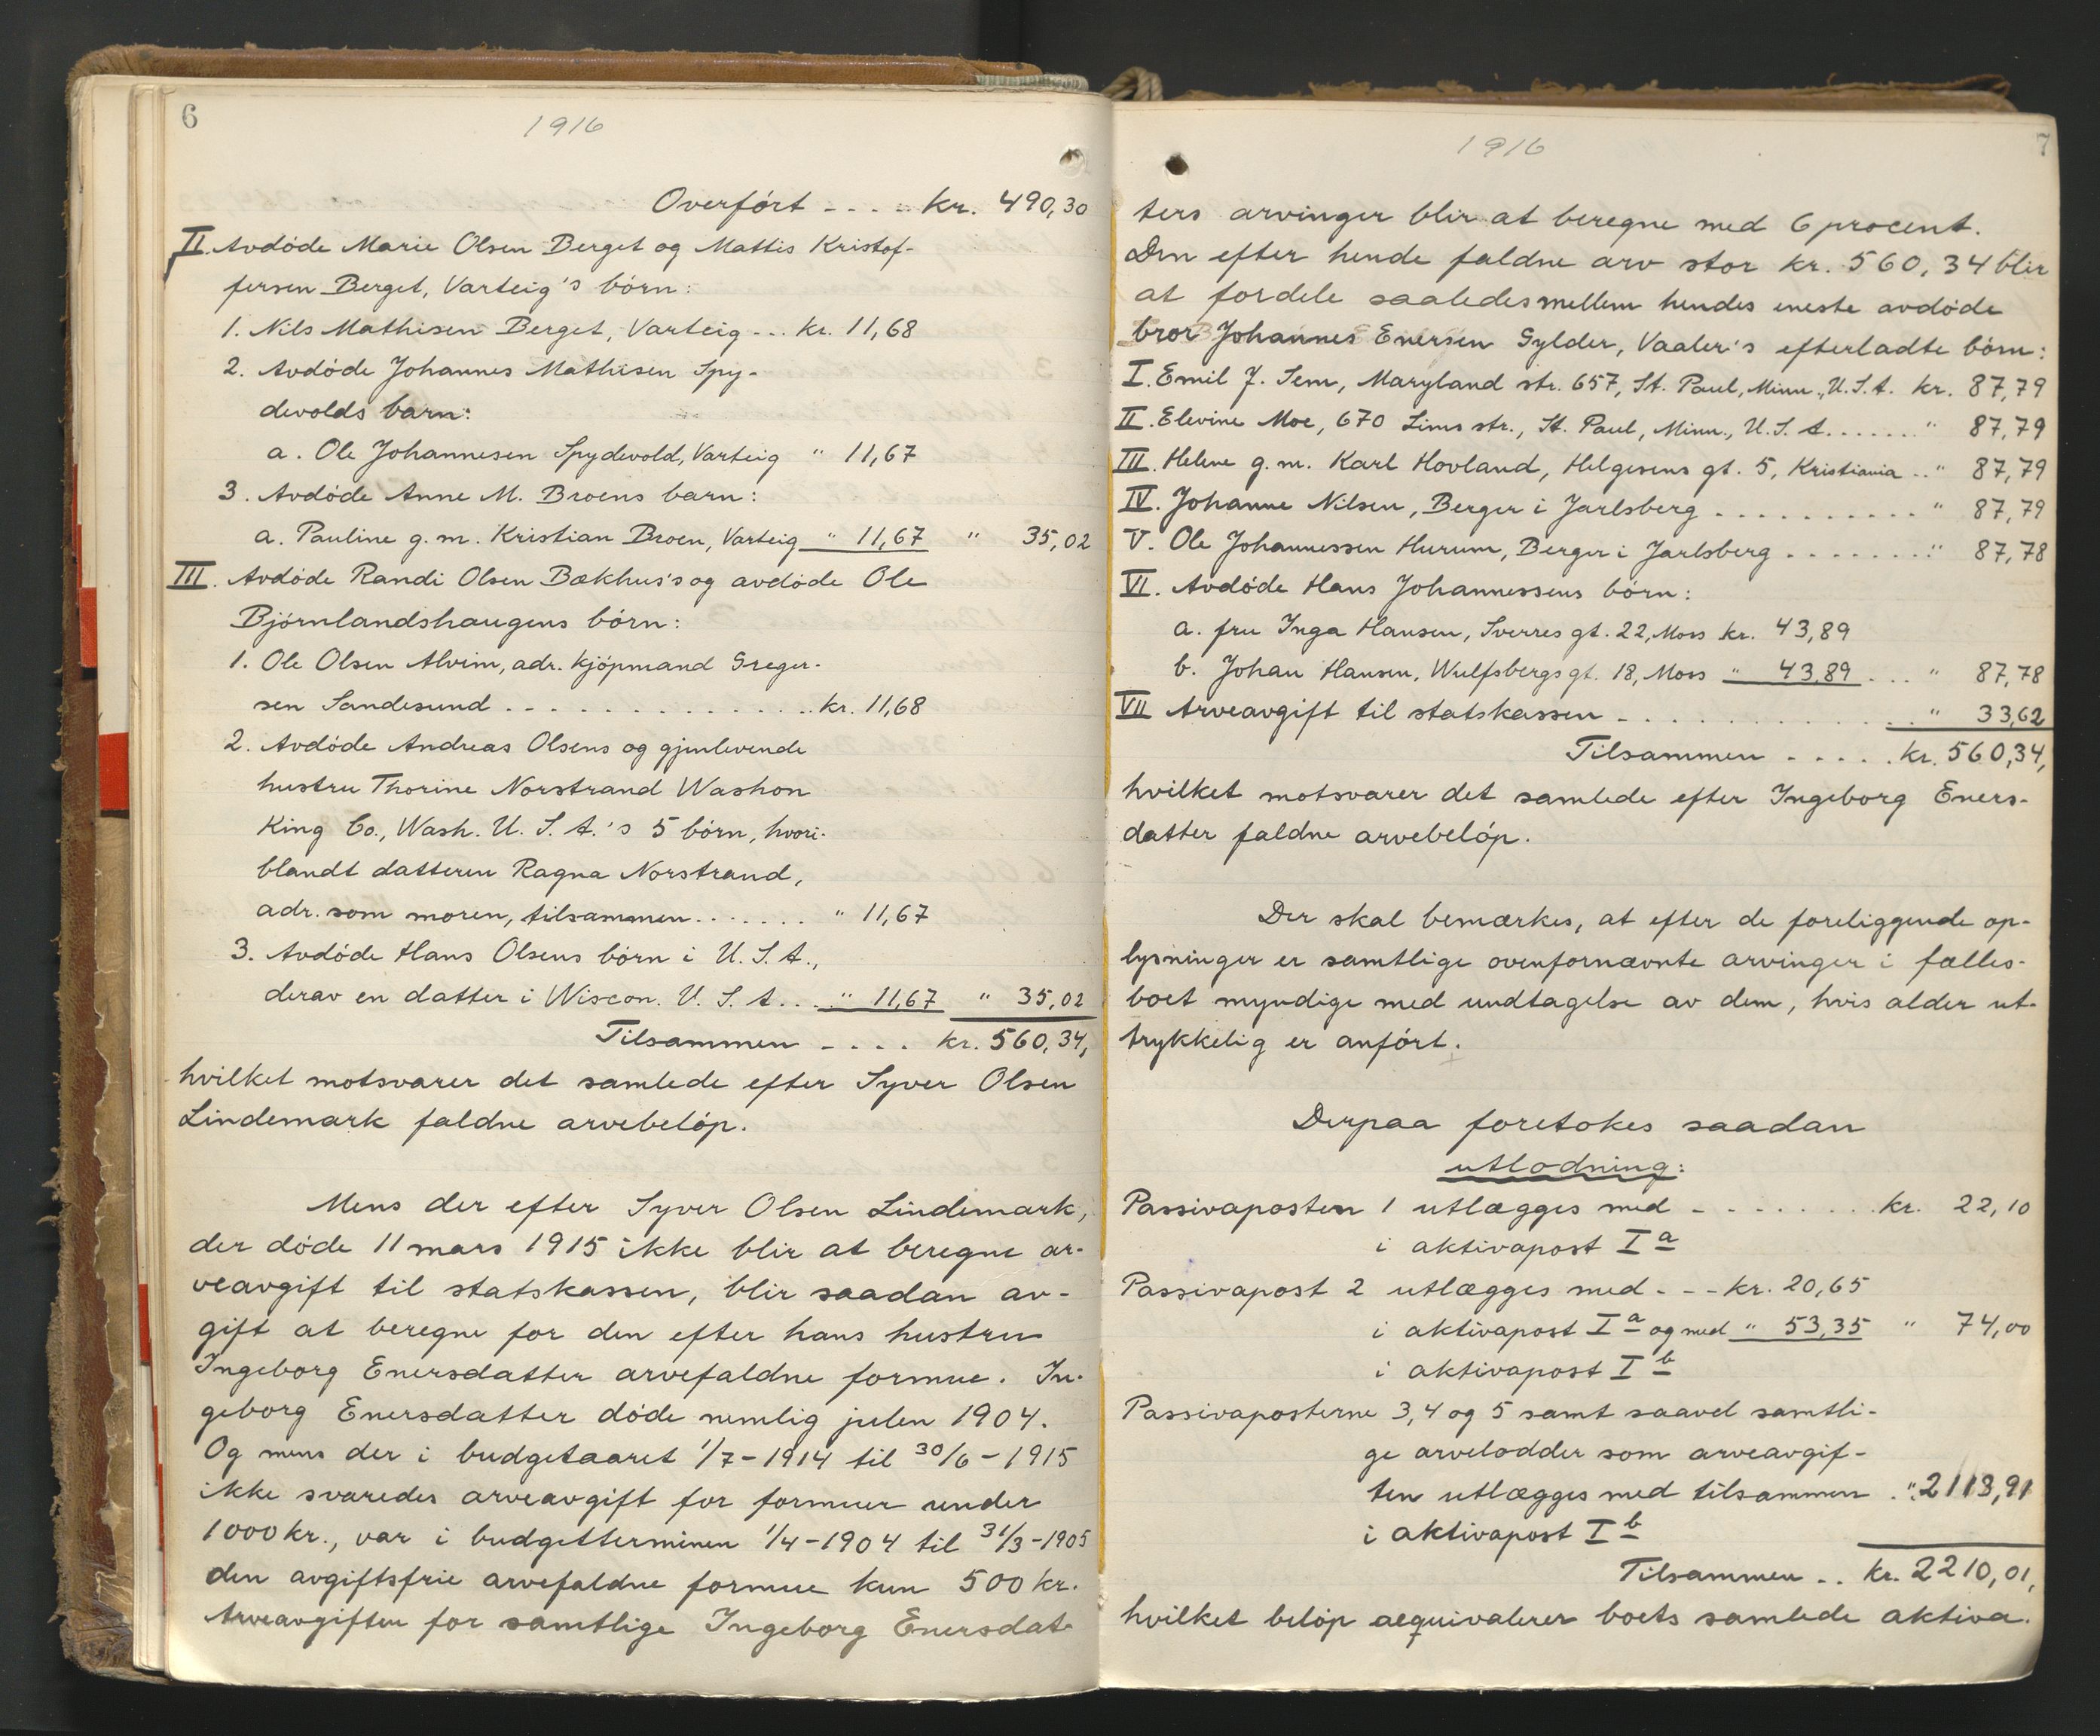 6
1916
Overført - - - - kr. 490,30
II. Avdøde Marie Olsen Berget og Mattis Kristof-
fersen Berget, Varteig's børn:
1. Nils Mathisen Berget, Varteig - - . kr. 11,68
2. Avdøde Johannes Mathisen Spy-
devolds barn:
a. Ole Johannesen Spydevold, Varteig " 11,67
3. Avdøde Anne M. Broens barn:
a. Pauline g. m. Kristian Broen, Varteig " 11,67 " 35,02
III. Avdøde Randi Olsen Bækhus's og avdøde Ole
Bjørnlandshaugens børn:
1. Ole Olsen Alvim, adr. kjøpmand Greger-
sen Sandesund - . . . . . . . . . . . . . kr. 11,68
2. Avdøde Andreas Olsens og gjenlevende
hustru Thorine Norstrand Washon
King Co., Wash. U. S. A.'s 5 børn, hvori-
blandt datteren Ragna Norstrand,
adr. som moren, tilsammen . . . . . . . " 11,67
3. Avdøde Hans Olsens børn i U. S. A.,
derav en datter i Wiscon. U. S. A. . . . " 11,67 " 35,02
Tilsammen - . . . kr. 560,34,
hvilket motsvarer det samlede efter Syver Olsen
Lindemark faldne arvebeløp.
Mens der efter Syver Olsen Lindemark,
der døde 11 mars 1915 ikke blir at beregne ar-
veavgift til statskassen, blir saadan av-
gift at beregne for den efter hans hustru
Ingeborg Enersdatter arvefaldne formue. In-
geborg Enersdatter døde nemlig julen 1904.
Og mens der i budgetaaret 1/7-1914 til 30/6-1915
ikke svaredes arveavgift for formuer under
1000 kr., var i budgetterminen 1/4-1904 til 31/3-1905
den avgiftsfrie arvefaldne formue kun 500 kr.
Arveavgiften for samtlige Ingeborg Enersdat-
7
1916
ters arvinger blir at beregne med 6 procent.
Den efter hende faldne arv stor kr. 560,34 blir
at fordele saaledes mellem hendes eneste avdøde
bror Johannes Enersen Gylder, Vaaler's efterladte børn:
I. Emil J. Sem, Maryland str. 657, St. Paul, Minn., U. S. A. kr. 87,79
II. Elevine Moe, 670 Lims str., St. Paul, Minn., U. S. A. . . . . . . " 87,79
III. Helene g. m. Karl Hovland, Helgesens gt. 5, Kristiania . . " 87,79
IV. Johanne Nilsen, Berger i Jarlsberg . . . . . . . . . . " 87,79
V. Ole Johannessen Hurum, Berger i Jarlsberg . . . . . . . " 87,78
VI. Avdøde Hans Johannessens børn:
a. fru Inga Hansen, Sverres gt. 22, Moss kr. 43,89
b. Johan Hansen, Wulfsbergs gt. 18, Moss " 43,89 . . . " 87,78
VII Arveavgift til statskassen - . . . . . . . . . . . . " 33,62
Tilsammen - . . . . kr. 560,34,
hvilket motsvarer det samlede efter Ingeborg Eners-
datter faldne arvebeløp.
Der skal bemærkes, at efter de foreliggende op-
lysninger er samtlige ovenfornævnte arvinger i fælles-
boet myndige med undtagelse av dem, hvis alder ut-
trykkelig er anført.
Derpaa foretokes saadan
utlodning:
Passivaposten 1 utlægges med - . . . . . . . kr. 22,10
i aktivapost I a
Passivapost 2 utlægges med - - - kr. 20,65
i aktivapost I a og med " 53,35 " 74,00
i aktivapost I b
Passivaposterne 3, 4 og 5 samt saavel samtli-
ge arvelodder som arveavgif-
ten utlægges med tilsammen . " 2113,91
i aktivapost I b
Tilsammen . . kr. 2210,01,
hvilket beløp aequivalerer boets samlede aktiva.